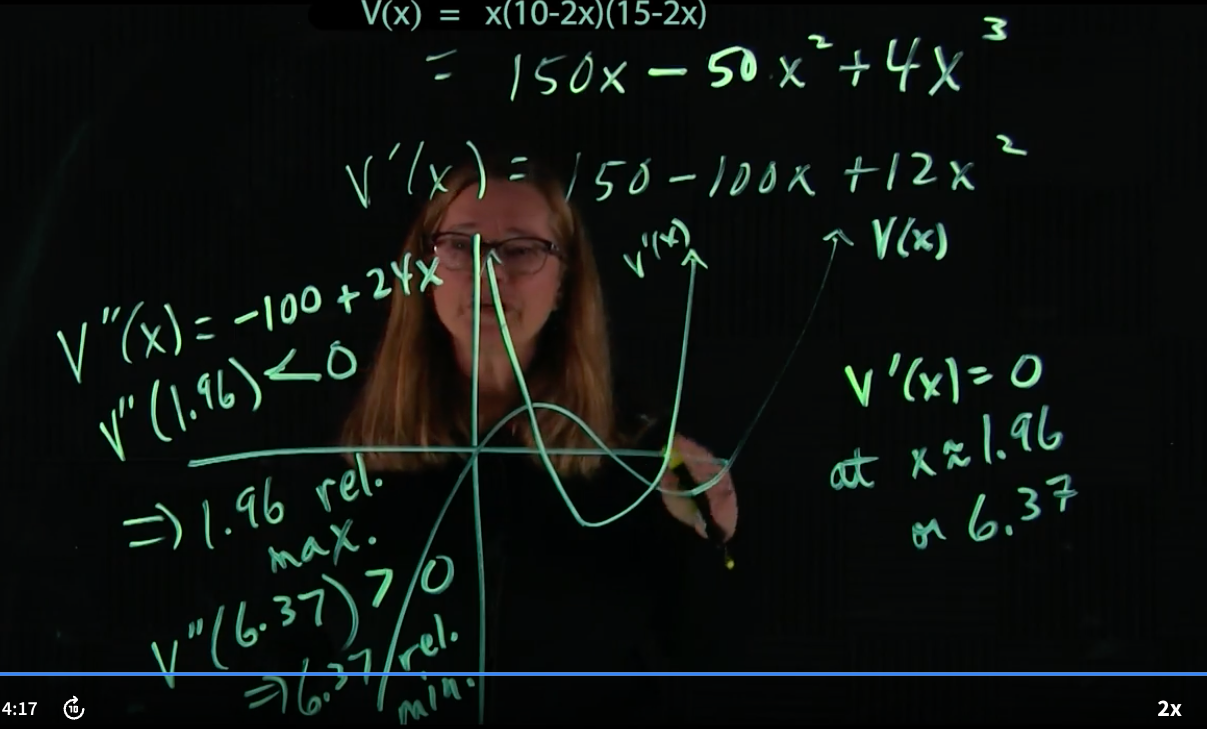 V(x) = x(10-2x)(15-2x)
= 150x - 50x² + 4x³
V'(x) = 150 - 100x + 12x²
V'(x)
V(x)
V"(x) = -100 + 24x
V"(1.96) < 0
⇒ 1.96 rel.
max.
V"(6.37) > 0
⇒ 6.37 rel.
min.
V'(x) = 0
at x ≈ 1.96
or 6.37
4:17
10
2x